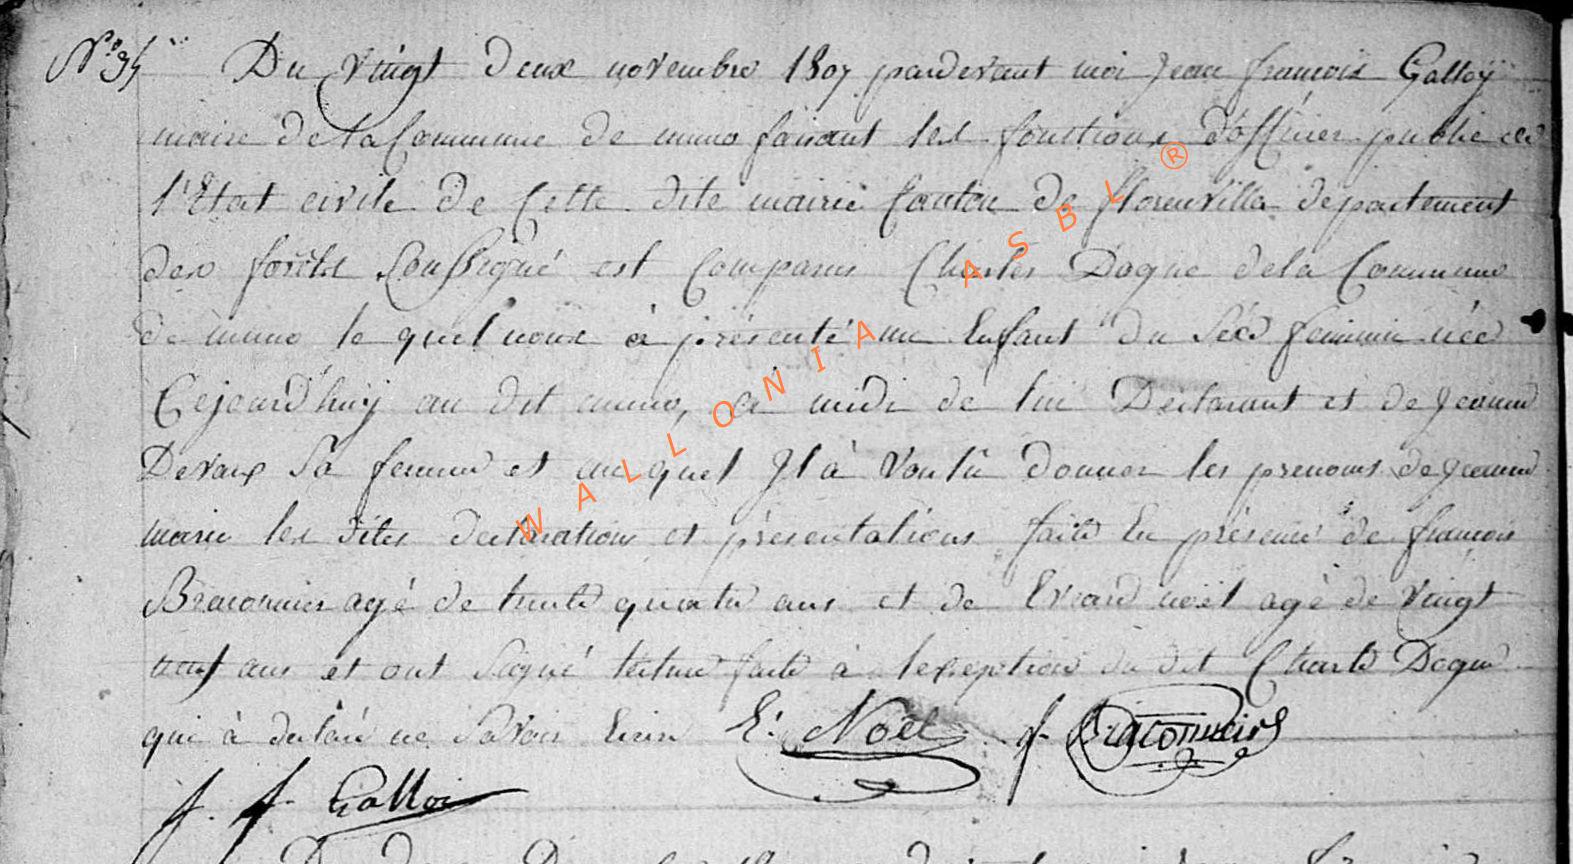 N.º 95 Du vingt deux novembre 1807 pardevant moi Jean françois Galloÿ
maire de la Commune de muno faisant les fonctions d'officier public de
l'Etat civile de Cette dite mairie Canton de florenville departement
des forêts Soussigné est Comparus Charles Doque de la Commune
de muno le quel nous à présenté un Enfant du Séxe féminin née
Cejourd'huÿ au dit muno, à midi de lui Déclarant et de Jeanne
Devaux Sa femme et au quel Jl à Voulû donner les prenoms de Jeanne
marie les dites declarations et présentations faite En présence de françois
Braconnier agé de trente quatre ans et de Evrard noël agé de Vingt
neuf ans et ont Signé lecture faite à lexception du dit Charle Doque
qui à declaré ne Savoir Ecrire E: Noël f. Braconnier
J. f. Galloi
WALLONIA ASBL ®